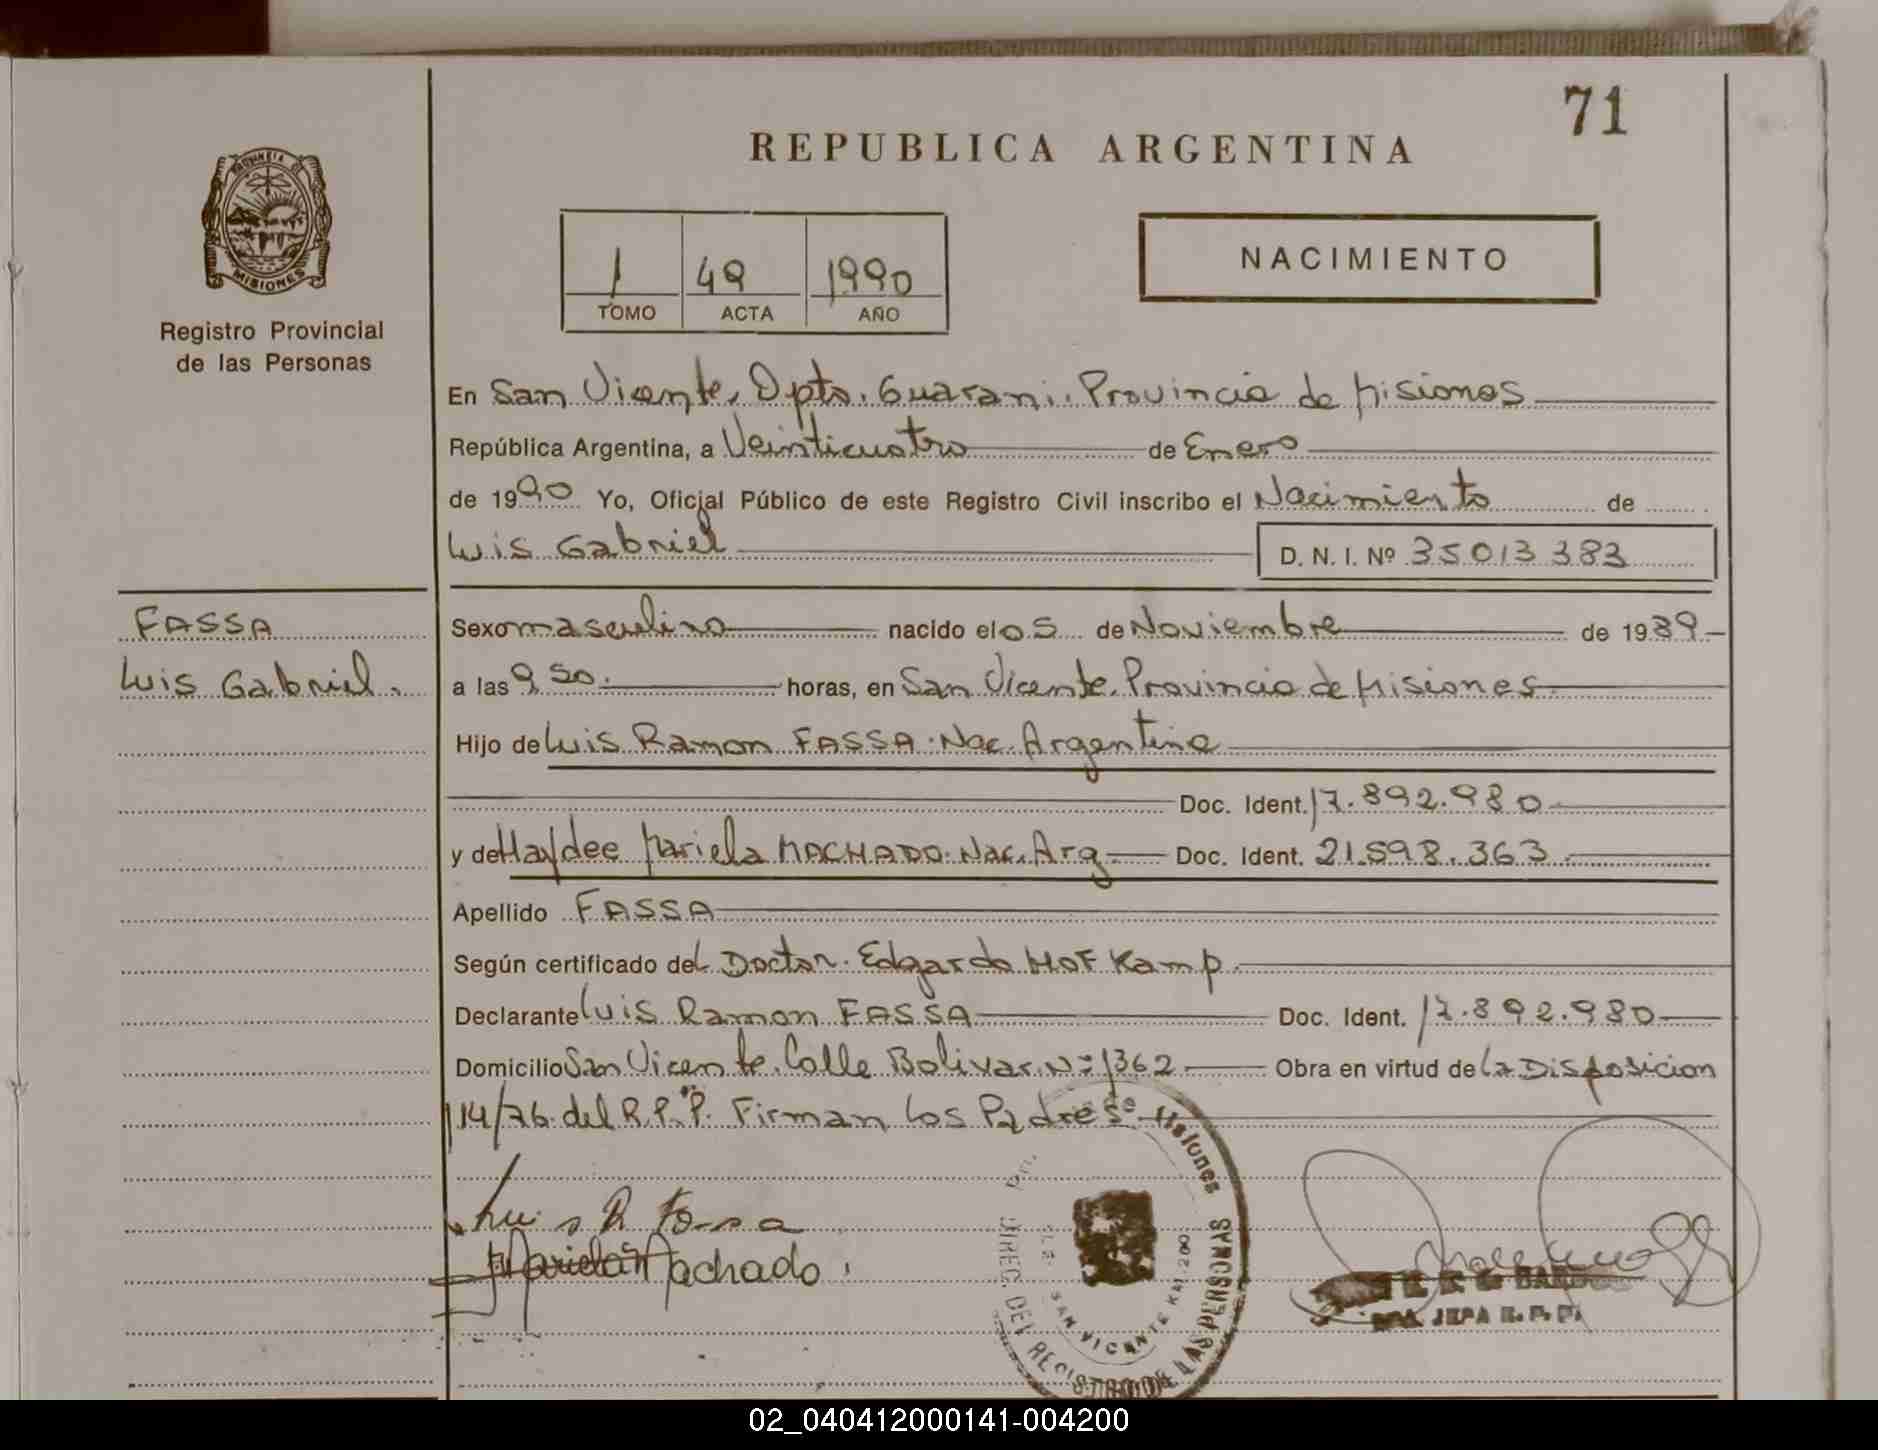 71
REPUBLICA ARGENTINA
PROVINCIA DE
MISIONES
Registro Provincial
de las Personas
1 49 1990
TOMO ACTA AÑO
NACIMIENTO
En San Vicente, Dpto. Guarani. Provincia de Misiones
República Argentina, a Veinticuatro de Enero
de 1990 Yo, Oficial Público de este Registro Civil inscribo el Nacimiento de
Luis Gabriel D. N. I. Nº 35013383
FASSA
Luis Gabriel.
Sexo masculino nacido el 05 de Noviembre de 1989
a las 9,50. horas, en San Vicente. Provincia de Misiones
Hijo de Luis Ramon FASSA. Nac. Argentina
Doc. Ident. 17.892.980
y de Haydee Mariela MACHADO. Nac. Arg Doc. Ident. 21.598.363
Apellido FASSA
Según certificado del Doctor. Edgardo HOF Kamp.
Declarante Luis Ramon FASSA Doc. Ident. 17.892.980
Domicilio San Vicente. Calle Bolivar. Nº 1362 Obra en virtud de La Disposicion
114/76 del R.P.P. Firman Los Padres
Misiones
DIREC. DEL REGISTRO DE LAS PERSONAS
SAN VICENTE KM. 200
Luis R Fassa
Mariela Machado
JEFA R. P. P.
02_040412000141-004200